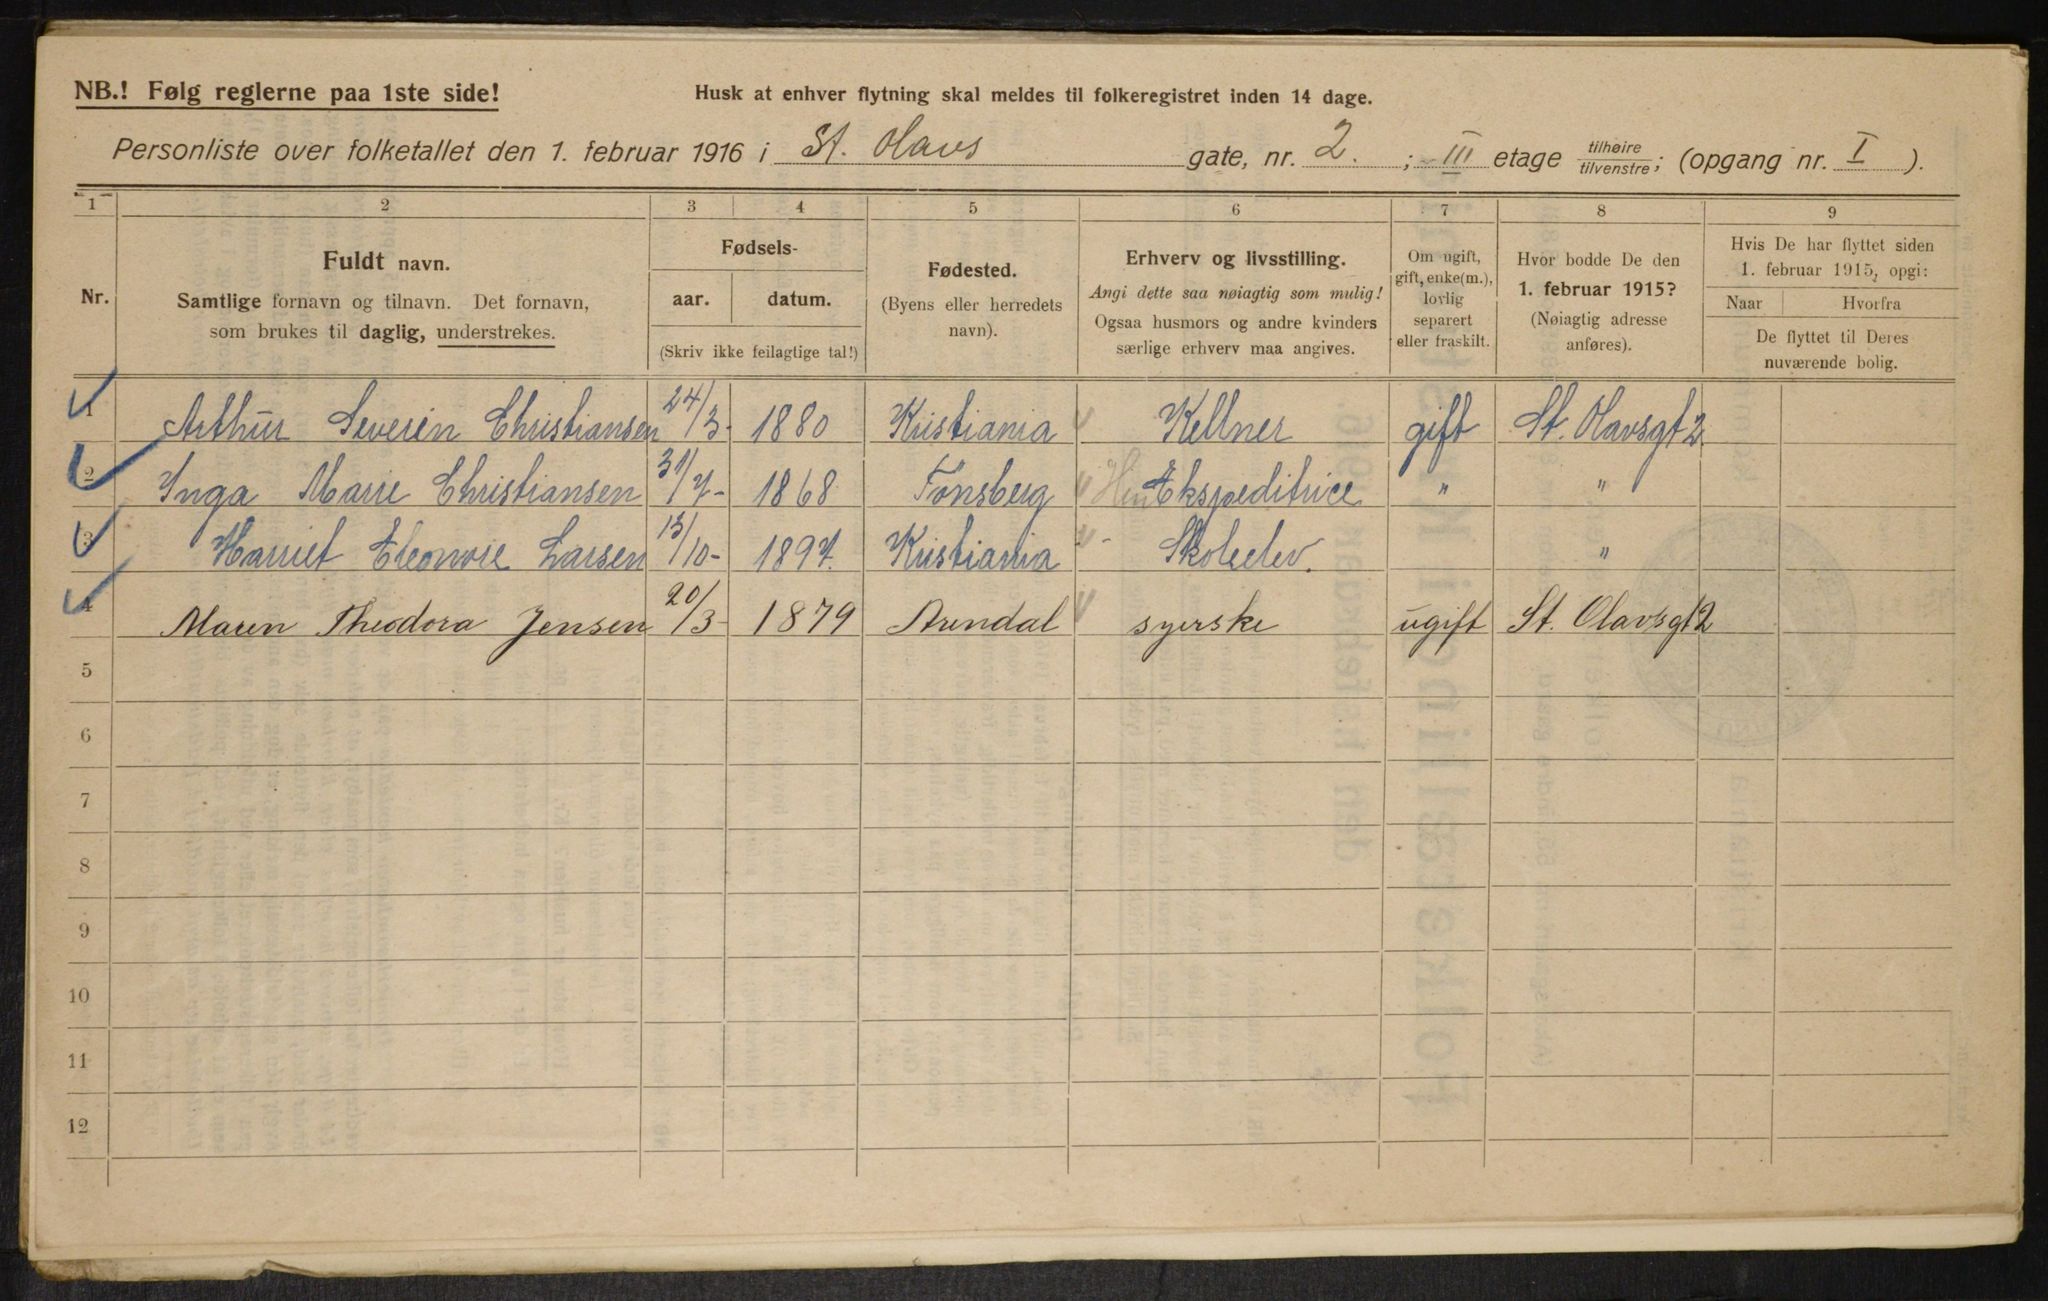 NB.! Følg reglerne paa 1ste side!
Husk at enhver flytning skal meldes til folkeregistret inden 14 dage.
Personliste over folketallet den 1. februar 1916 i St. Olavs gate, nr. 2. ; III etage tilhøire/tilvenstre; (opgang nr. I ).
1 2 3 4 5 6 7 8 9
Nr.
Fuldt navn.
Samtlige fornavn og tilnavn. Det fornavn,
som brukes til daglig, understrekes.
Fødsels-
aar. datum.
(Skriv ikke feilagtige tal!)
Fødested.
(Byens eller herredets
navn).
Erhverv og livsstilling.
Angi dette saa nøiagtig som mulig!
Ogsaa husmors og andre kvinders
særlige erhverv maa angives.
Om ugift,
gift, enke(m.),
lovlig
separert
eller fraskilt.
Hvor bodde De den
1. februar 1915?
(Nøiagtig adresse
anføres).
Hvis De har flyttet siden
1. februar 1915, opgi:
Naar Hvorfra
De flyttet til Deres
nuværende bolig.
1 Arthur Severin Christiansen 24/3- 1880 Kristiania Kellner gift St. Olavsgt 2
2 Inga Marie Christiansen 31/7- 1868 Tønsberg Ekspeditrice " "
3 Harriet Eleonore Larsen 15/10- 1897. Kristiania Skoleelev. "
4 Maren Theodora Jensen 20/3- 1879 Arendal syerske ugift St. Olavsgt 2
5
6
7
8
9
10
11
12